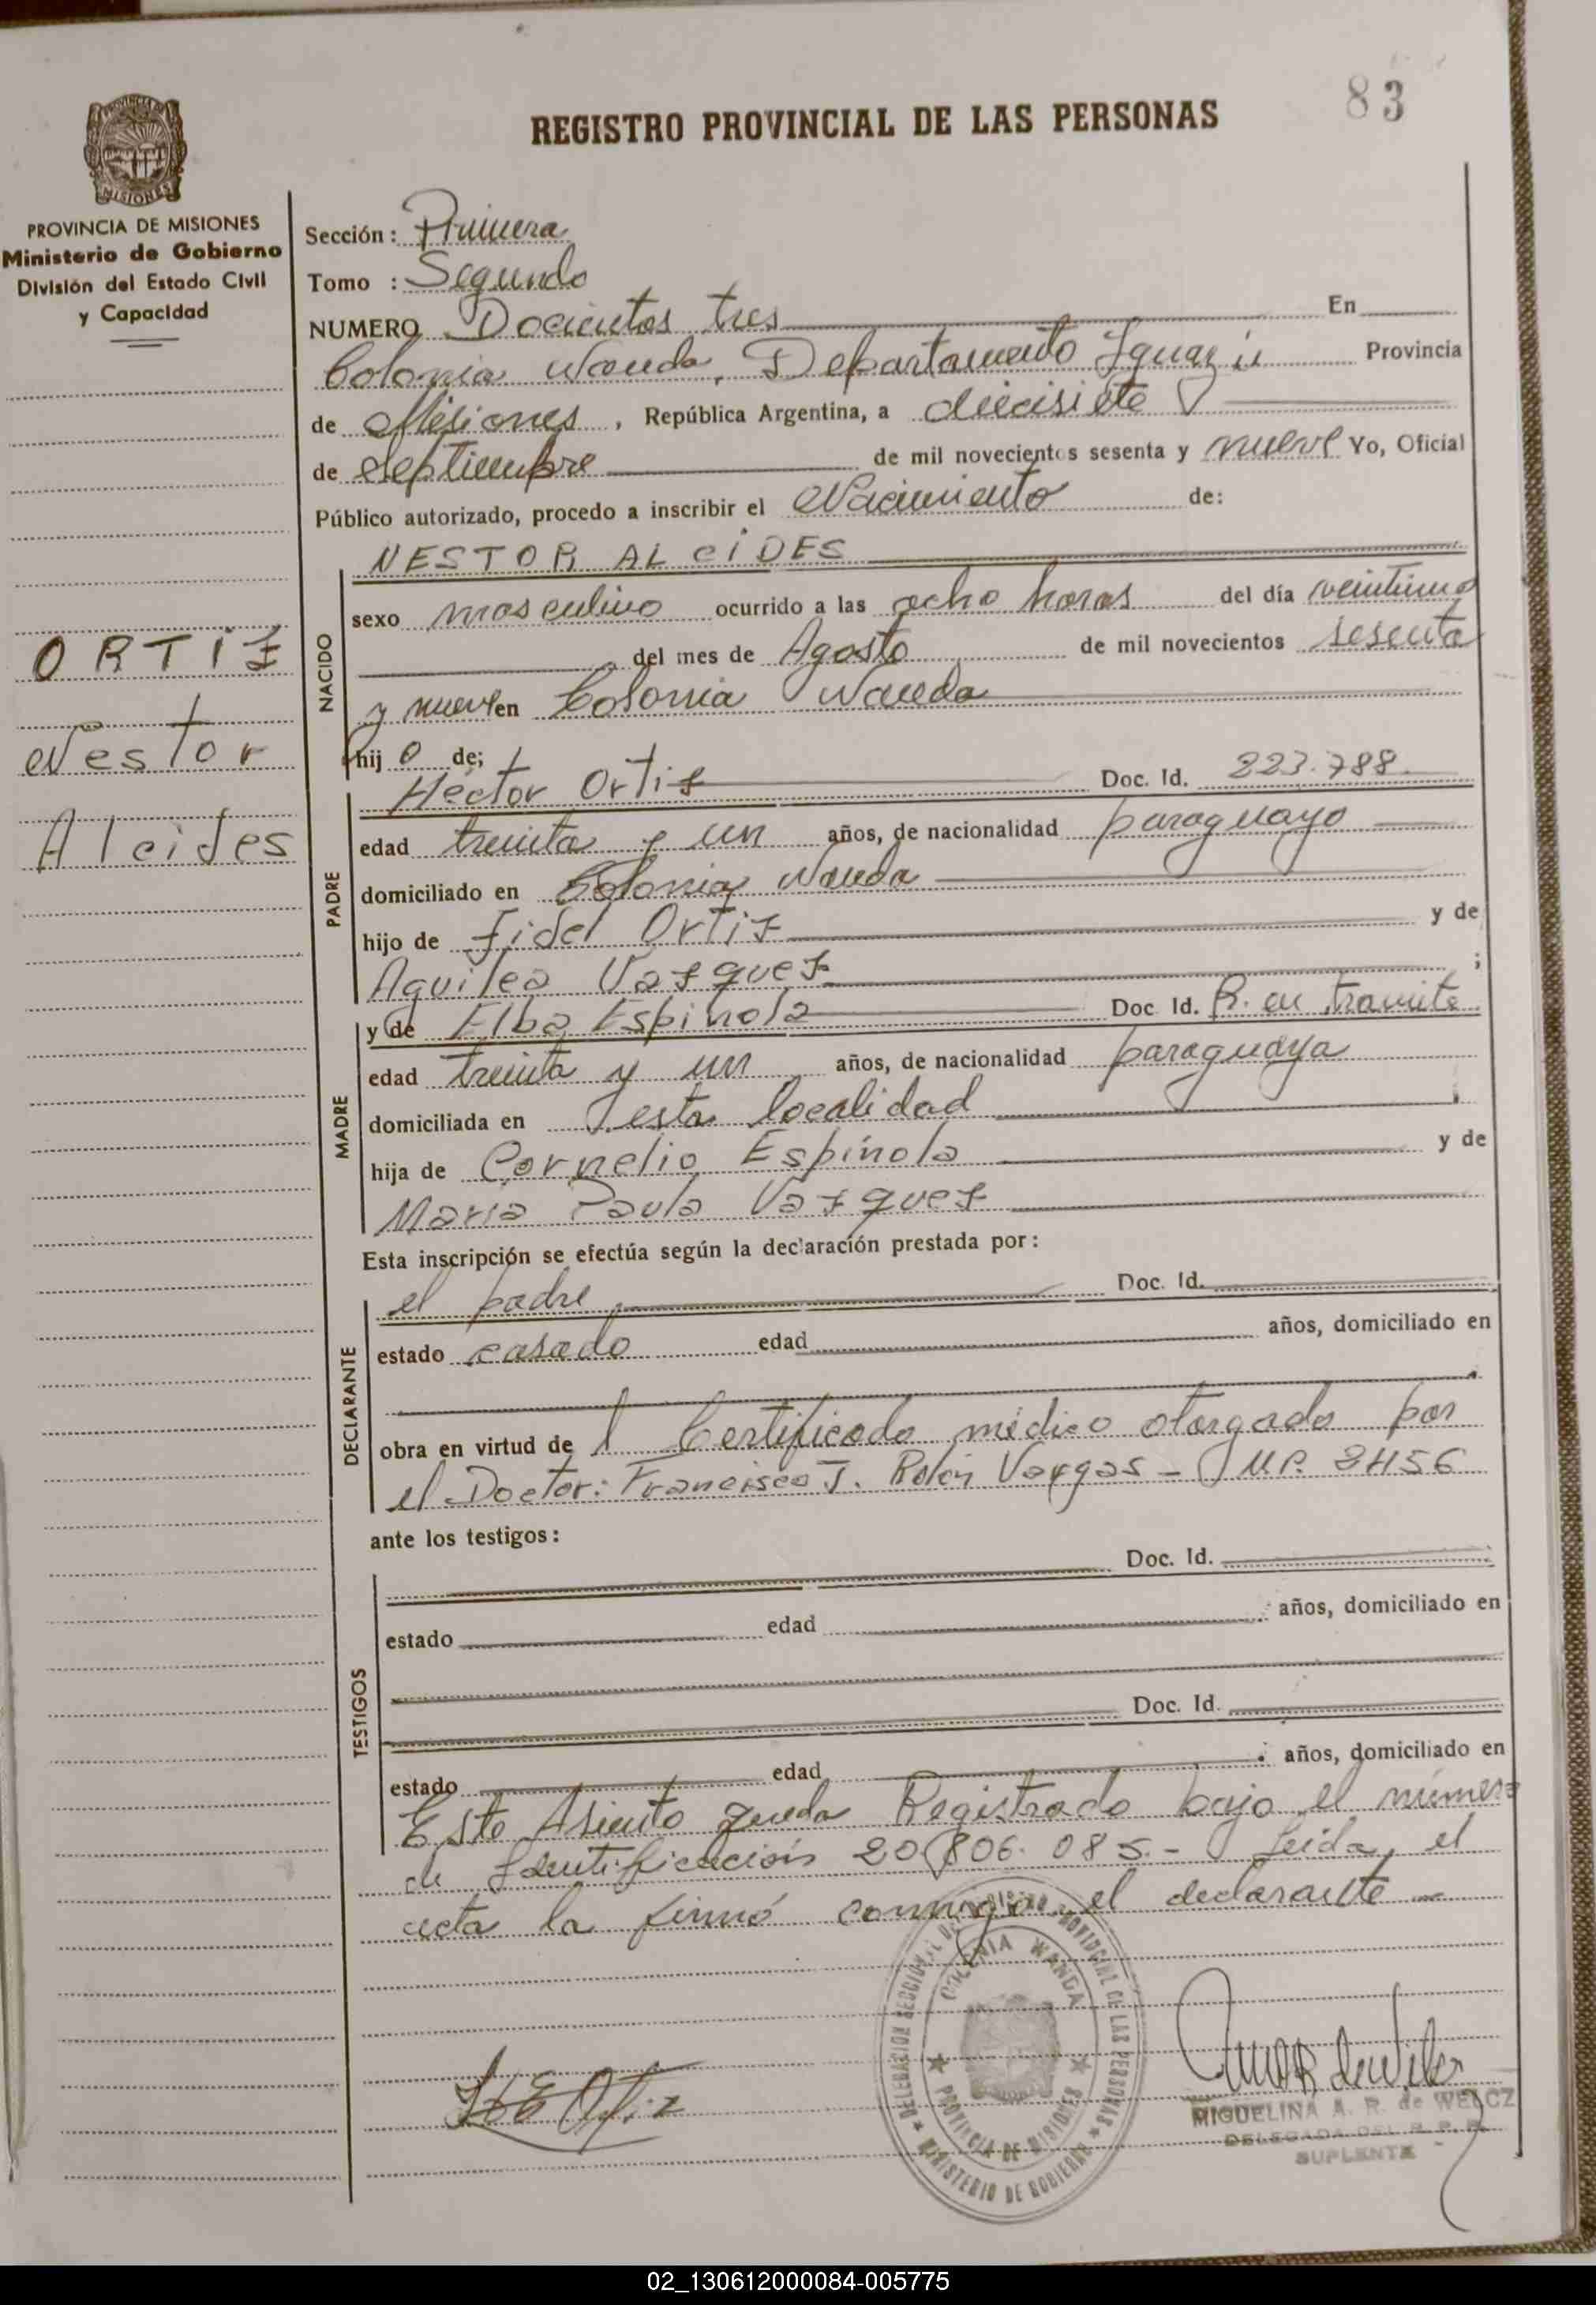 83
REGISTRO PROVINCIAL DE LAS PERSONAS
PROVINCIA DE MISIONES
Ministerio de Gobierno
División del Estado Civil
y Capacidad
ORTIZ
Nestor
Alcides
Sección: Primera
Tomo : Segundo
NUMERO Docientos tres En
Colonia Wanda, Departamento Iguazú Provincia
de Misiones, República Argentina, a diecisiete
de Septiembre de mil novecientos sesenta y nueve Yo, Oficial
Público autorizado, procedo a inscribir el Nacimiento de:
NACIDO
NESTOR ALCIDES
sexo masculino ocurrido a las ocho horas del día veintiuno
del mes de Agosto de mil novecientos sesenta
y nueve en Colonia Wanda
hijo de;
PADRE
Héctor Ortiz Doc. Id. 223.788
edad treinta y un años, de nacionalidad paraguayo
domiciliado en Colonia Wanda
hijo de Fidel Ortiz y de
Aquilea Vazquez ;
MADRE
y de Elba Espinola Doc. Id. R. en tramite
edad treinta y un años, de nacionalidad paraguaya
domiciliada en esta localidad
hija de Cornelio Espínola y de
María Paula Vazquez
Esta inscripción se efectúa según la declaración prestada por:
DECLARANTE
el padre Doc. Id.
estado casado edad años, domiciliado en
obra en virtud del Certificado médico otorgado por
el Doctor: Francisco J. Rolón Vargas - M.P. 2456
ante los testigos:
TESTIGOS
Doc. Id.
estado edad años, domiciliado en
Doc. Id.
estado edad años, domiciliado en
Este Asiento queda Registrado bajo el número
de Identificación 20.806.085.- Leida, el
acta la firmó conmigo el declarante
DELEGACION SECCIONAL DEL REGISTRO PROVINCIAL DE LAS PERSONAS
COLONIA WANDA
PROVINCIA DE MISIONES
MINISTERIO DE GOBIERNO
Ortiz
MIGUELINA A. R. de WELCZ
DELEGADA DEL R. P. P.
SUPLENTE
02_130612000084-005775